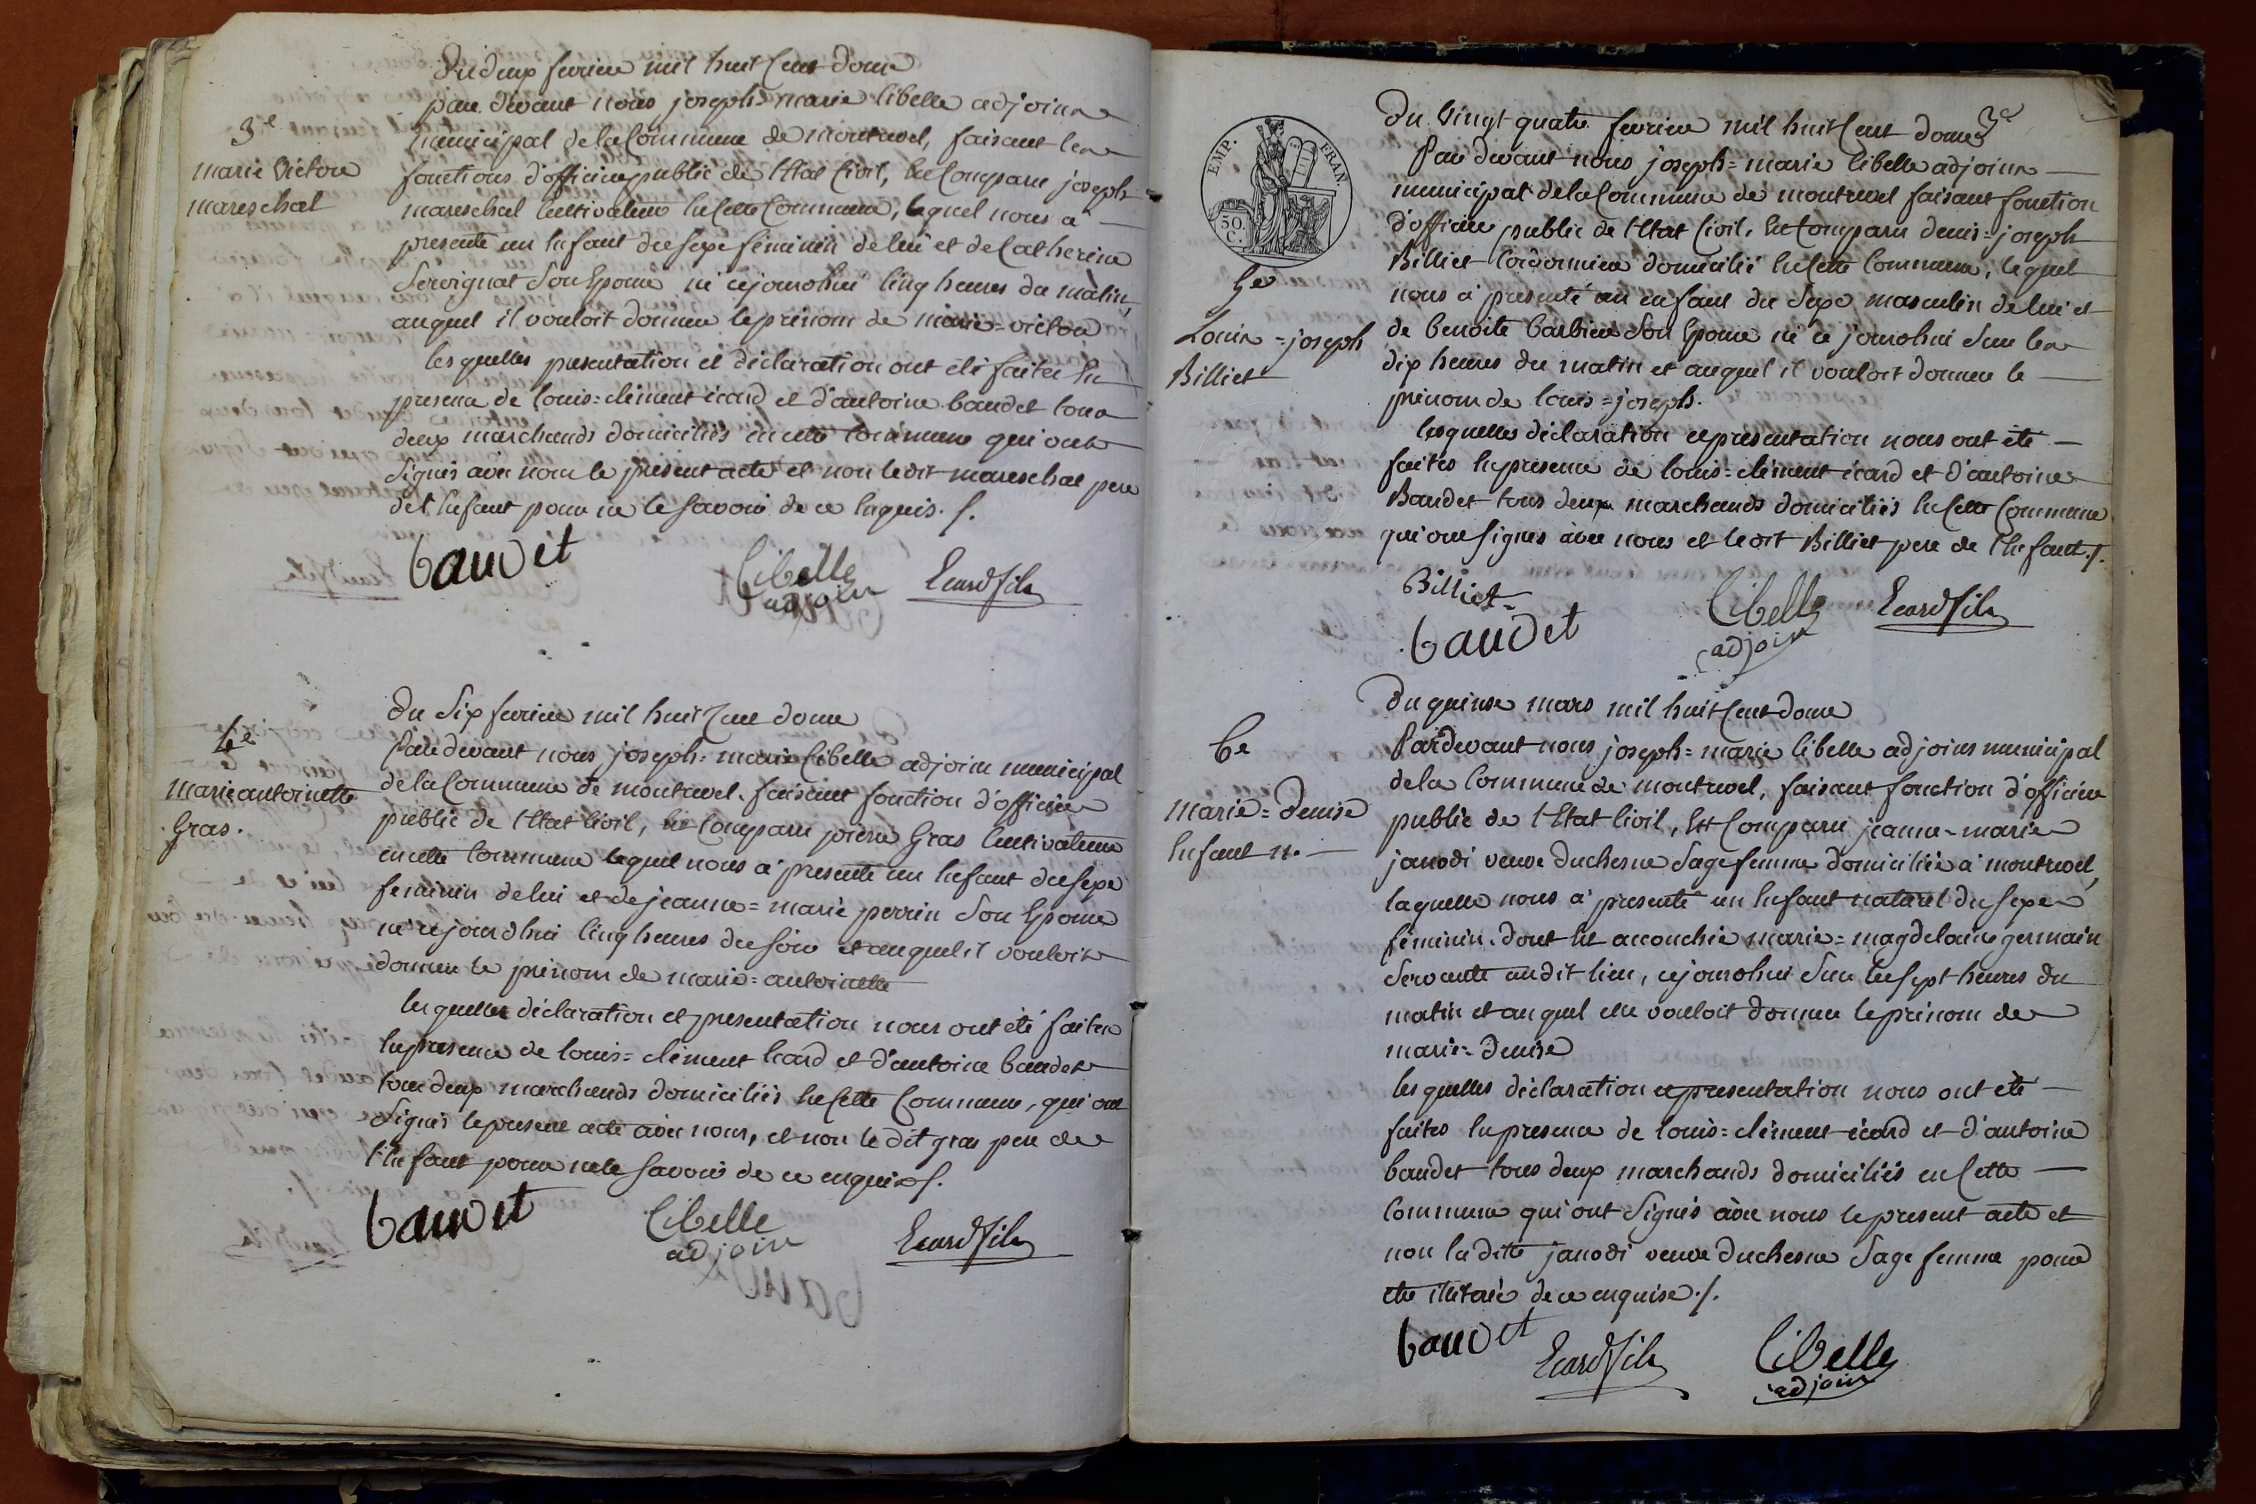 Du deux fevrier mil huit Cent douze
par devant nous joseph marie Cibelle adjoint
3e
municipal de la Commune de montrevel, faisant les
marie victoire
fonctions d'officier public de l'Etat Civil, Est Comparu joseph
mareschal
mareschal Cultivateur En Cette Commune, lequel nous à
presenté un Enfant du sexe féminin de lui et de Catherine
Servignat Son Epouse né cejourdhui Cinq heures du matin,
auquel il vouloit donner le prénom de marie=victoire
lesquelles presentation et déclaration ont été faites En
presence de louis=clément écard et d'antoine baudet tous
deux marchands domiciliés en cette commune qui ont
Signés avec nous le present acte et non ledit mareschal pere
de l'Enfant pour ne le Savoir de ce Enquis ./.
baudet
Cibelle
adjoin
Ecard fils
Du Six fevrier mil huit Cent douze
4e
Par devant nous joseph=marie Cibelle adjoint municipal
marie antoinette
de la Commune de montrevel, faisant fonction d'officier
Gras.
public de l'Etat Civil, Est Comparu pierre Gras Cultivateur
en cette Commune lequel nous à presenté un Enfant du sexe
feminin de lui et de jeanne=marie perrin Son Epouse
né cejourdhui Cinq heures du Soir et auquel il vouloit
donner le prénom de marie=antoinette
lesquelles déclaration et presentation nous ont été faites
En presence de louis=clément Ecard et d'antoine baudet
tous deux marchands domiciliés En Cette Commune, qui ont
Signés le present acte avec nous, et non le dit gras pere de
l'Enfant pour ne le Savoir de ce enquis ./.
baudet
Cibelle
adjoin
Ecard fils
EMP. FRAN.
50
C.
Du Vingt quatre fevrier mil huit Cent douze
Par devant nous joseph=marie Cibelle adjoint
municipal de la Commune de montrevel faisant fonction
d'officier public de l'Etat Civil, Est Comparu denis=joseph
Billiet Cordonnier domicilié En Cette Commune, lequel
5e
nous à presenté un enfant du Sexe masculin de lui et
Louis=joseph
de benoite barbier Son Epouse né ce jourdhui Sur les
Billiet
dix heures du matin et auquel il vouloit donner le
prénom de louis=joseph.
lesquelles déclaration et presentation nous ont été
faites En presence de louis=clément écard et d'antoine
Baudet tous deux marchands domiciliés En Cette Commune
qui ont Signés avec nous et ledit Billiet pere de l'Enfant ./.
Billiet
baudet
Cibelle
adjoin
Ecard fils
Du quinze mars mil huit Cent douze
6e
Pardevant nous joseph=marie Cibelle adjoint municipal
de la Commune de montrevel, faisant fonction d'officier
marie=Denise
public de l'Etat Civil, Est Comparu jeanne=marie
Enfant n.
janodi veuve duchesne Sage femme domiciliée à montrevel,
laquelle nous à presenté un Enfant naturel du Sexe
féminin, dont Est accouchée marie=magdelaine germain
Servante audit lieu, cejourdhui Sur les Sept heures du
matin et auquel elle vouloit donner le prénom de
marie=Denise
lesquelles déclaration et presentation nous ont été
faites En presence de louis=clément écard et d'antoine
baudet tous deux marchands domiciliés en Cette
Commune qui ont Signés avec nous le present acte et
non la ditte janodi veuve Duchesne Sage femme pour
etre illiterée de ce enquise ./.
baudet
Ecard fils
Cibelle
adjoin